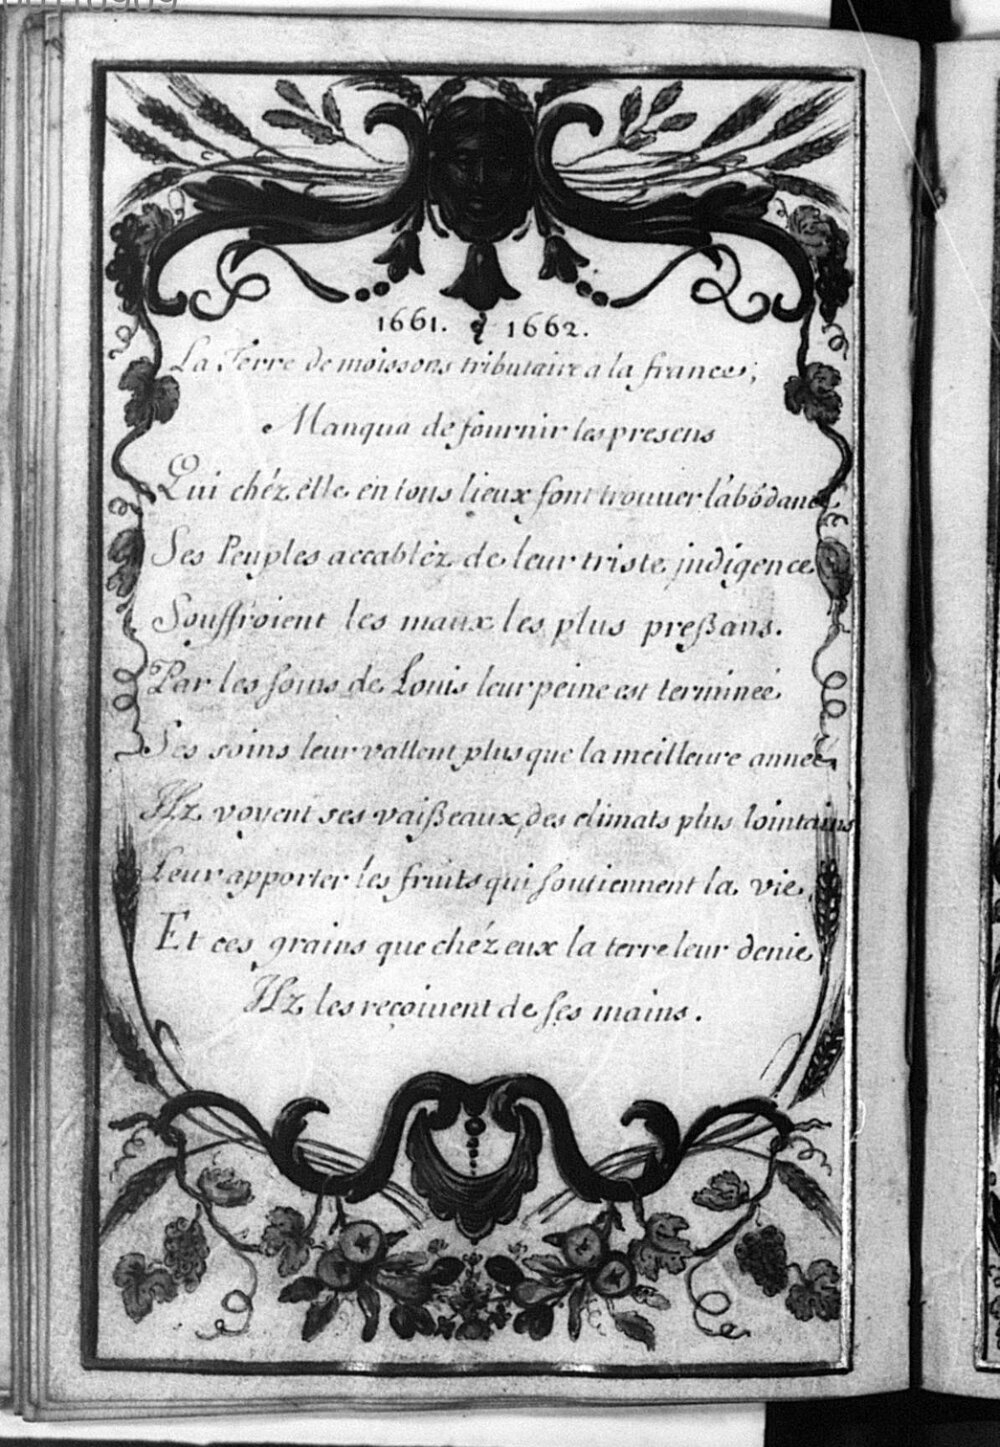 1661. & 1662.
La Terre de moissons tributaire a la france,
Manqua de fournir les presens
Qui chéz elle en tous lieux font trouuer l'abōdance
Ses Peuples accabléz de leur triste indigence
Souffroient les maux les plus preßans.
Par les soins de Louis leur peine est terminée
Ses soins leur vallent plus que la meilleure année,
Ilz voyent ses vaißeaux, des climats plus lointains
Leur apporter les fruits qui soutiennent la vie,
Et ces grains que chéz eux la terre leur denie
Ilz les reçoivent de ses mains.